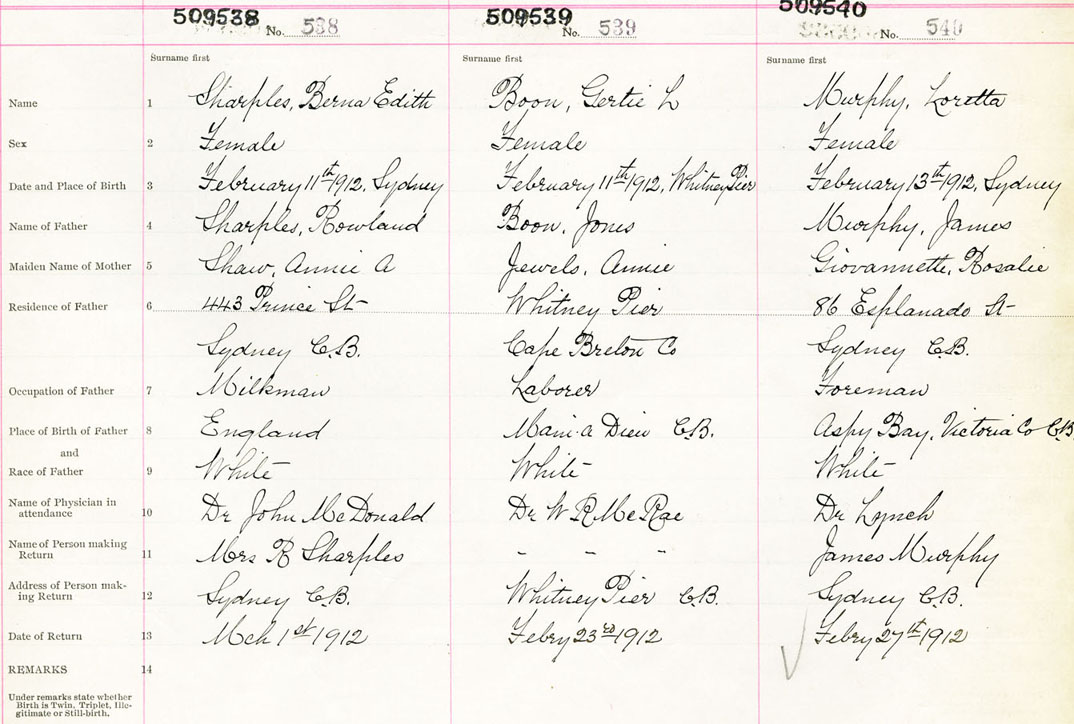 509538 509539 509540
No. 538 No. 539 No. 540
Surname first Surname first Surname first
Name 1 Sharples, Berna Edith Boon, Gertie L Murphy, Loretta
Sex 2 Female Female Female
Date and Place of Birth 3 February 11th 1912, Sydney February 11th 1912, Whitney Pier February 13th 1912, Sydney
Name of Father 4 Sharples, Rowland Boon, Jones Murphy, James
Maiden Name of Mother 5 Shaw, Annie A Jewels, Annie Giovannette, Rosalie
Residence of Father 6 443 Prince St Whitney Pier 86 Esplanade St
Sydney C.B. Cape Breton Co Sydney C.B.
Occupation of Father 7 Milkman Laborer Foreman
Place of Birth of Father 8 England Main-a Dieu C.B. Aspy Bay, Victoria Co C.B
and
Race of Father 9 White White White
Name of Physician in
attendance 10 Dr John McDonald Dr W R McRae Dr Lynch
Name of Person making
Return 11 Mrs R Sharples - - - James Murphy
Address of Person mak-
ing Return 12 Sydney C.B. Whitney Pier C.B. Sydney C.B.
Date of Return 13 Mch 1st 1912 Febry 23rd 1912 Febry 27th 1912
REMARKS 14
Under remarks state whether
Birth is Twin, Triplet, Ille-
gitimate or Still-birth.